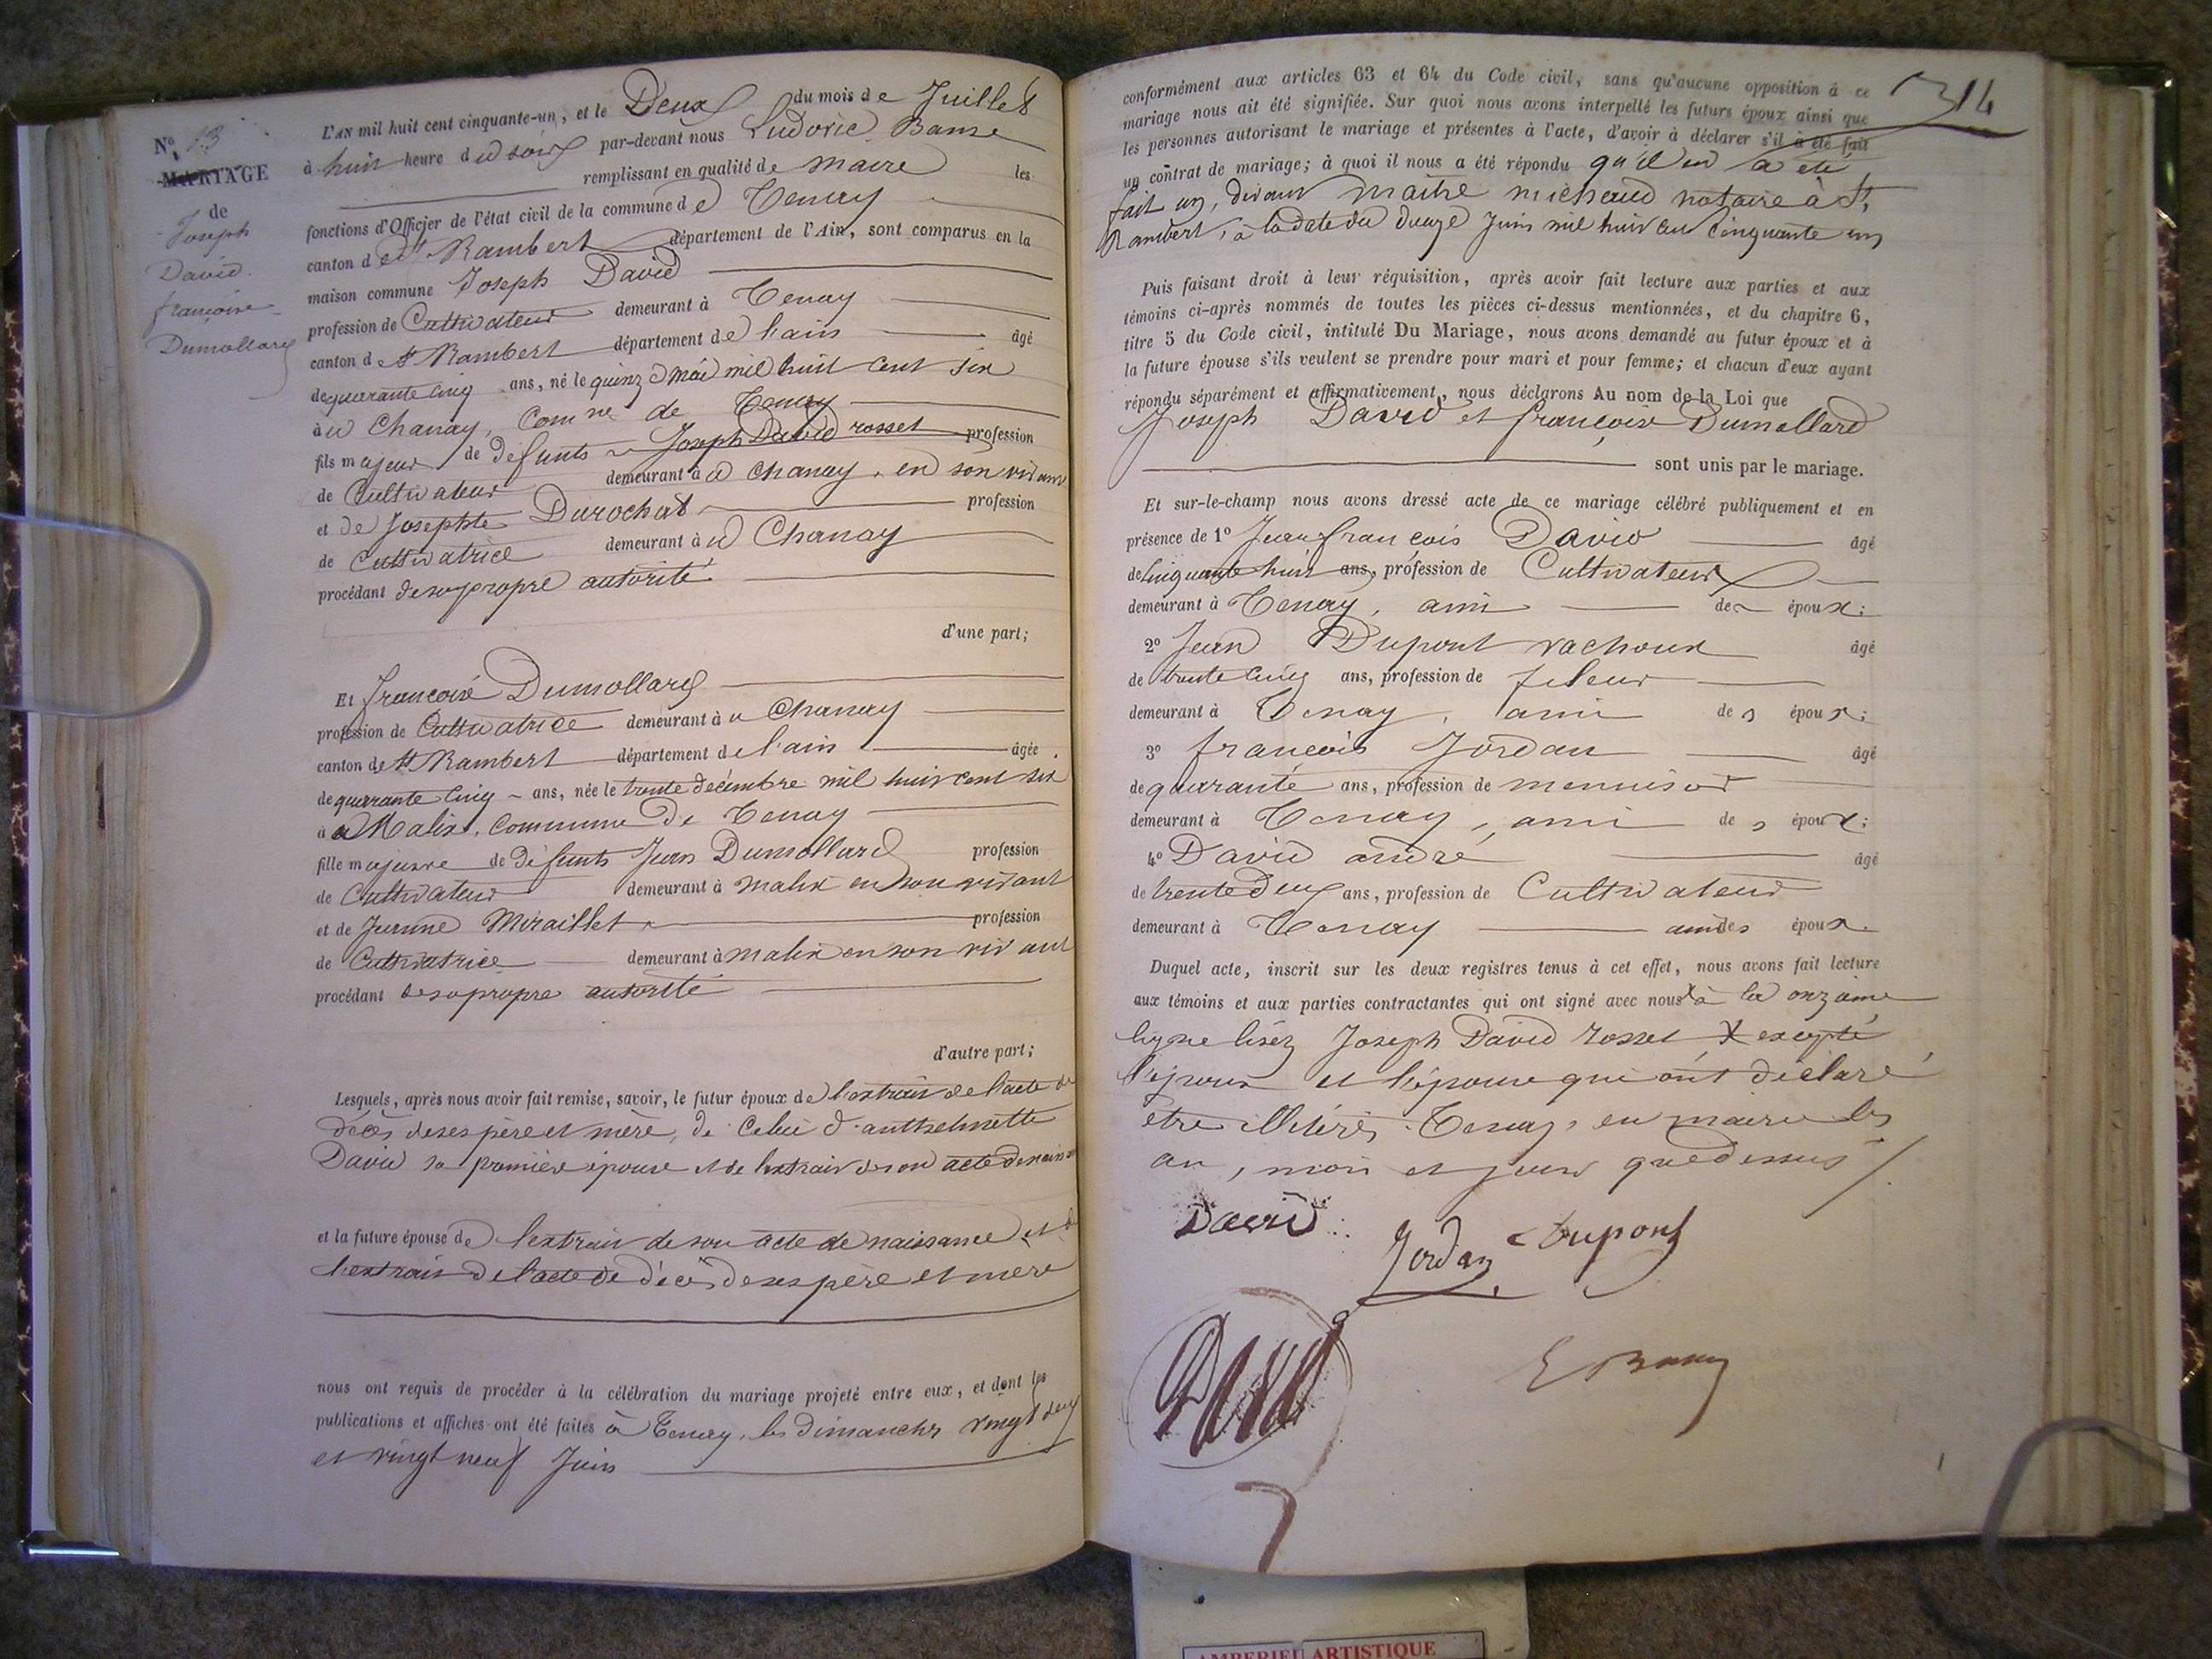 N° 13
MARIAGE
de
Joseph
David
françoise
Dumollard
L'AN mil huit cent cinquante-un, et le Deux du mois de Juillet
à huit heure du soir par-devant nous Ludovic
remplissant en qualité de maire les
fonctions d'Officier de l'état civil de la commune de Tenay
canton de St Rambert département de l'Ain, sont comparus en la
maison commune Joseph David
profession de Cultivateur demeurant à Tenay
canton de St Rambert département de l'ain âgé
de quarante cinq ans, né le quinze mai mil huit cent six
à Chanay, Comne de Tenay
fils majeur de défunts Joseph David rosset profession
de Cultivateur demeurant à Chanay, en son vivant
et de Josephte Durochat profession
de Cultivatrice demeurant à Chanay
procédant de sa propre autorité
d'une part;
Et françoise Dumollard
profession de Cultivatrice demeurant à Chanay
canton de St Rambert département de l'ain âgée
de quarante cinq ans, née le trente décembre mil huit cent six
à Malix, commune de Tenay
fille majeure de défunts Jean Dumollard profession
de Cultivateur demeurant à malix en son vivant
et de Jeanne Miraillet profession
de Cultivatrice demeurant à malix en son vivant
procédant de sa propre autorité
d'autre part;
Lesquels, après nous avoir fait remise, savoir, le futur époux de l'extrait de l'acte de
décès de ses père et mère, de Celui d'anthelmette
David sa première épouse et de l'extrait de son acte de naiss
et la future épouse de l'extrait de son acte de naissance et de
l'extrait de l'acte de décès de ses père et mère
nous ont requis de procéder à la célébration du mariage projeté entre eux, et dont les
publications et affiches ont été faites à Tenay, les dimanches vingt deux
et vingt neuf Juin
314
conformément aux articles 63 et 64 du Code civil, sans qu'aucune opposition à ce
mariage nous ait été signifiée. Sur quoi nous avons interpellé les futurs époux ainsi que
les personnes autorisant le mariage et présentes à l'acte, d'avoir à déclarer s'il a été fait
un contrat de mariage; à quoi il nous a été répondu qu'il en a été
fait un, devant maitre michaud notaire à St
Rambert, à la date du douze Juin mil huit cent cinquante un
Puis faisant droit à leur réquisition, après avoir fait lecture aux parties et aux
témoins ci-après nommés de toutes les pièces ci-dessus mentionnées, et du chapitre 6,
titre 5 du Code civil, intitulé Du Mariage, nous avons demandé au futur époux et à
la future épouse s'ils veulent se prendre pour mari et pour femme; et chacun d'eux ayant
répondu séparément et affirmativement, nous déclarons Au nom de la Loi que
Joseph David et françoise Dumollard
sont unis par le mariage.
Et sur-le-champ nous avons dressé acte de ce mariage célébré publiquement et en
présence de 1° Jean françois David âgé
de cinquante huit ans, profession de Cultivateur
demeurant à Tenay, ami des époux;
2° Jean Dupont vachoux âgé
de trente cinq ans, profession de fileur
demeurant à Tenay, ami des époux;
3° françois Jordan âgé
de quarante ans, profession de menuisier
demeurant à Tenay, ami des époux;
4° David andré âgé
de trente deux ans, profession de Cultivateur
demeurant à Tenay ami des époux.
Duquel acte, inscrit sur les deux registres tenus à cet effet, nous avons fait lecture
aux témoins et aux parties contractantes qui ont signé avec nous X à la onzième
ligne lisez Joseph David rosset X excepté
l'époux et l'épouse qui ont déclaré
être illitérés. Tenay, en mairie les
an, mois et jour que dessus /.
David
Jordan
Dupont
David
AMBERIEU ARTISTIQUE